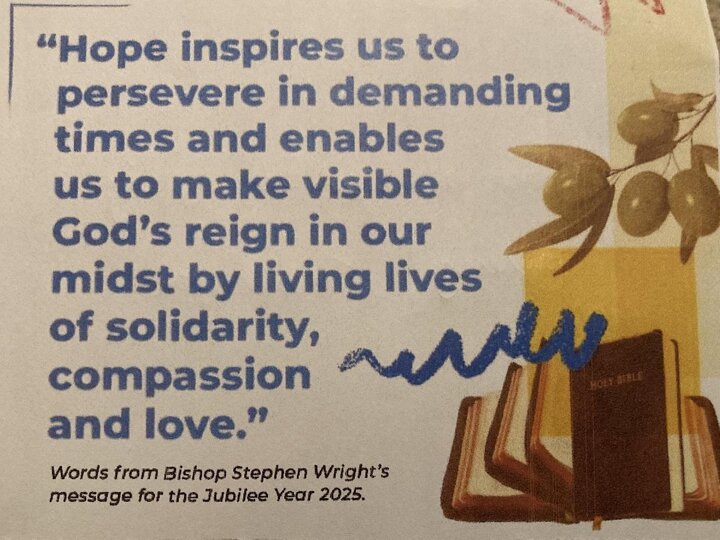 “Hope inspires us to
persevere in demanding
times and enables
us to make visible
God’s reign in our
midst by living lives
of solidarity,
compassion
and love.”
Words from Bishop Stephen Wright’s
message for the Jubilee Year 2025.
HOLY BIBLE